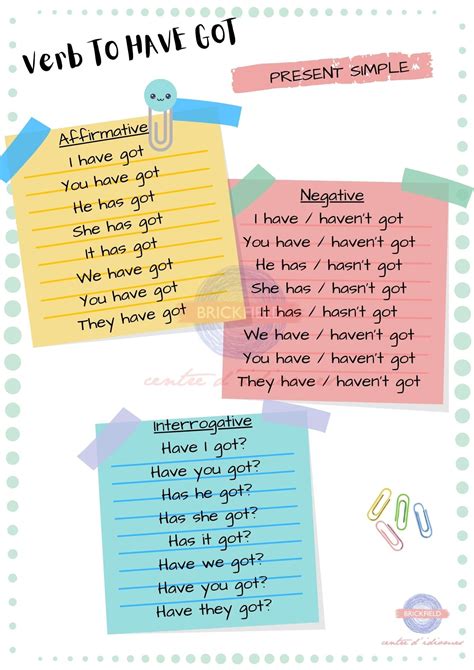 Verb TO HAVE GOT
PRESENT SIMPLE
Affirmative
I have got
You have got
He has got
She has got
It has got
We have got
You have got
They have got
Negative
I have / haven't got
You have / haven't got
He has / hasn't got
She has / hasn't got
It has / hasn't got
We have / haven't got
You have / haven't got
They have / haven't got
BRICKFIELD
centre d'idiomes
Interrogative
Have I got?
Have you got?
Has he got?
Has she got?
Has it got?
Have we got?
Have you got?
Have they got?
BRICKFIELD
centre d'idiomes